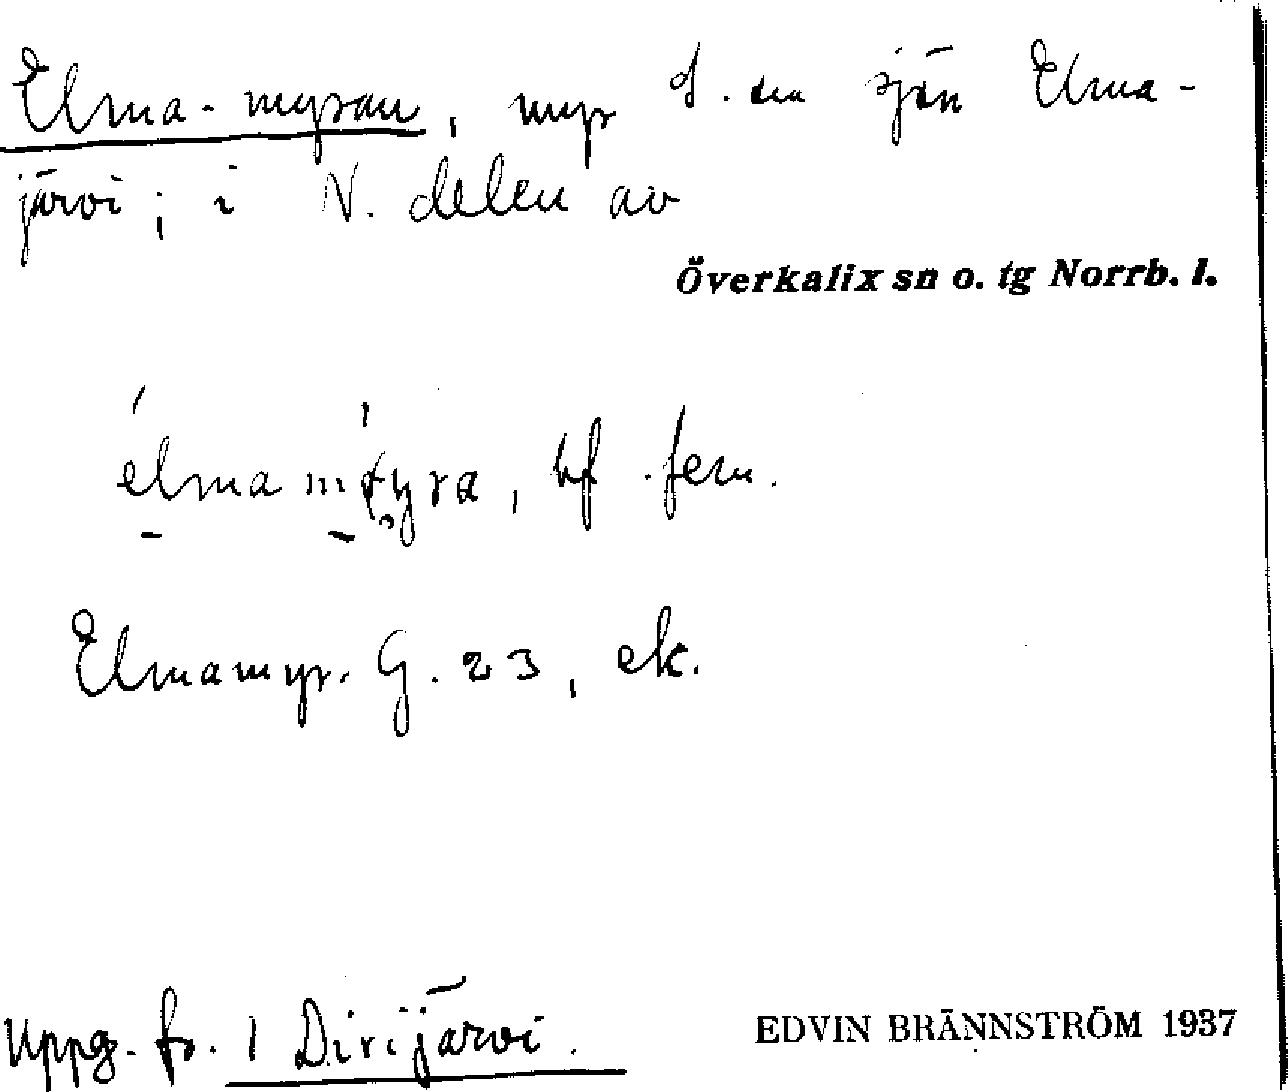 Elma-myran, myr S. om sjön Elma-
järvi; i N. delen av
Överkalix sn o. tg Norrb. l.
bf. fem.
Elmamyr. G. 23, ek.
Uppg. fr. 1 Dirijärvi.
EDVIN BRÄNNSTRÖM 1937